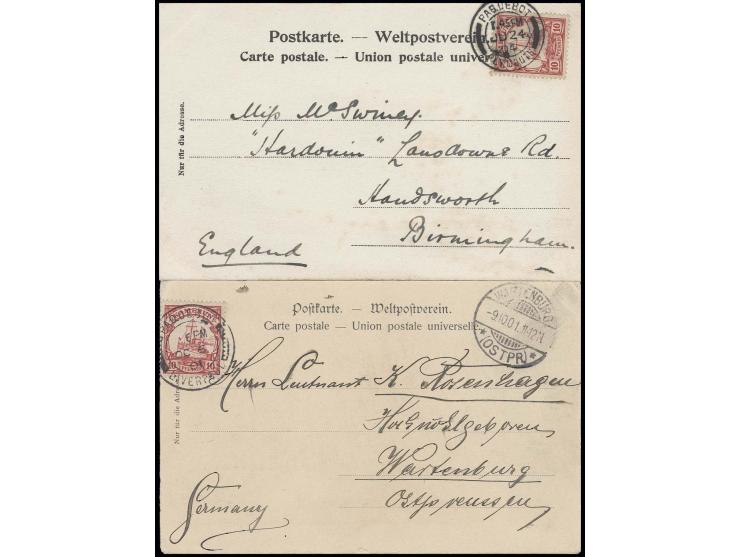 Postkarte. — Weltpostverein.
Carte postale. — Union postale univer
PAQUEBOT
JU 24
04
10 10
Nur für die Adresse.
Miss McSwiney.
"Hardouin" Lansdowne Rd.
Handsworth
Birmingham.
England
Postkarte. — Weltpostverein.
Carte postale — Union postale universelle
WARTENBURG
-9.10.01. 11-12V.
* (OSTPR) *
10
Nur für die Adre
Herrn Leutnant K. Rosenhagen
Hochwohlgeboren
Wartenburg
Ostpreussen
Germany